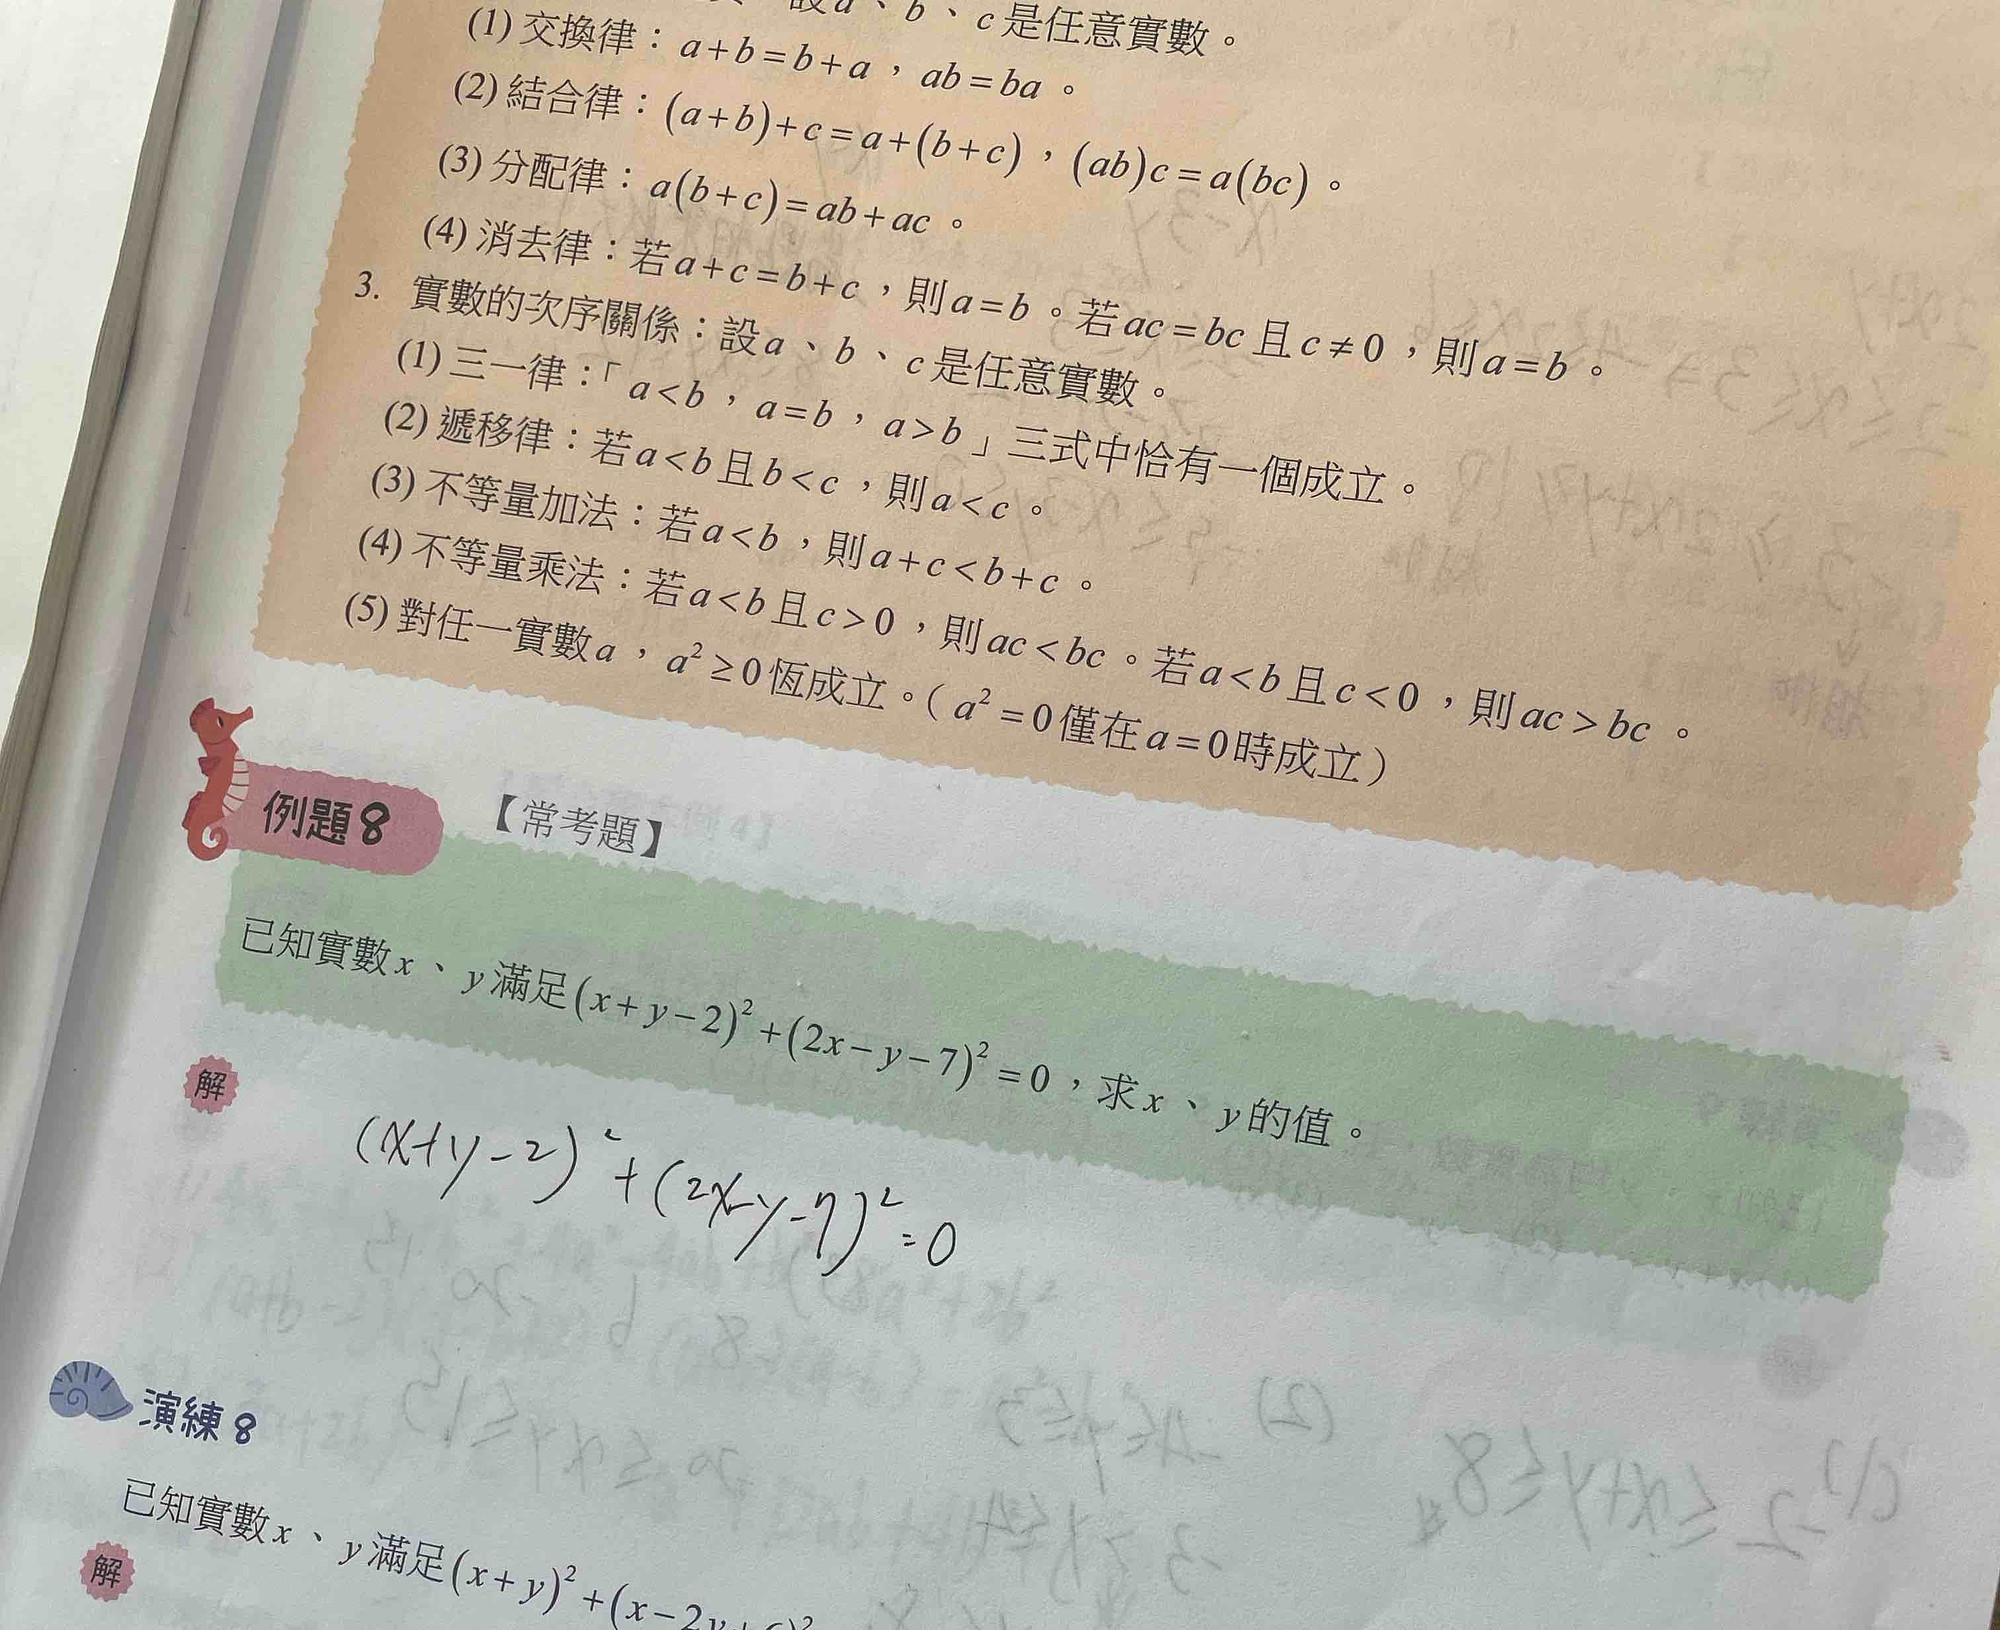 設a、b、c是任意實數。
(1) 交換律：a+b=b+a，ab=ba。
(2) 結合律：(a+b)+c=a+(b+c)，(ab)c=a(bc)。
(3) 分配律：a(b+c)=ab+ac。
(4) 消去律：若a+c=b+c，則a=b。若ac=bc且c≠0，則a=b。
3. 實數的次序關係：設a、b、c是任意實數。
(1) 三一律：「a<b，a=b，a>b」三式中恰有一個成立。
(2) 遞移律：若a<b且b<c，則a<c。
(3) 不等量加法：若a<b，則a+c<b+c。
(4) 不等量乘法：若a<b且c>0，則ac<bc。若a<b且c<0，則ac>bc。
(5) 對任一實數a，a²≥0恆成立。（a²=0僅在a=0時成立）
例題8 【常考題】
已知實數x、y滿足(x+y−2)²+(2x−y−7)²=0，求x、y的值。
解
(x+y-2)²+(2x-y-7)²=0
演練8
已知實數x、y滿足(x+y)²+(x−2y+
解